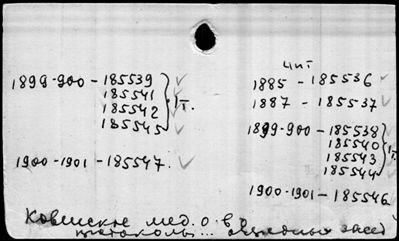 1899-900 - 185539
185541
185542
185545
1т.
1900-1901 - 185547.
чит
1885 - 185536
1887 - 185537
1899-900 - 185538
185540
185543
185544
1т.
1900-1901 - 185546
Ковенское мед. о-во
протоколы... заседаний